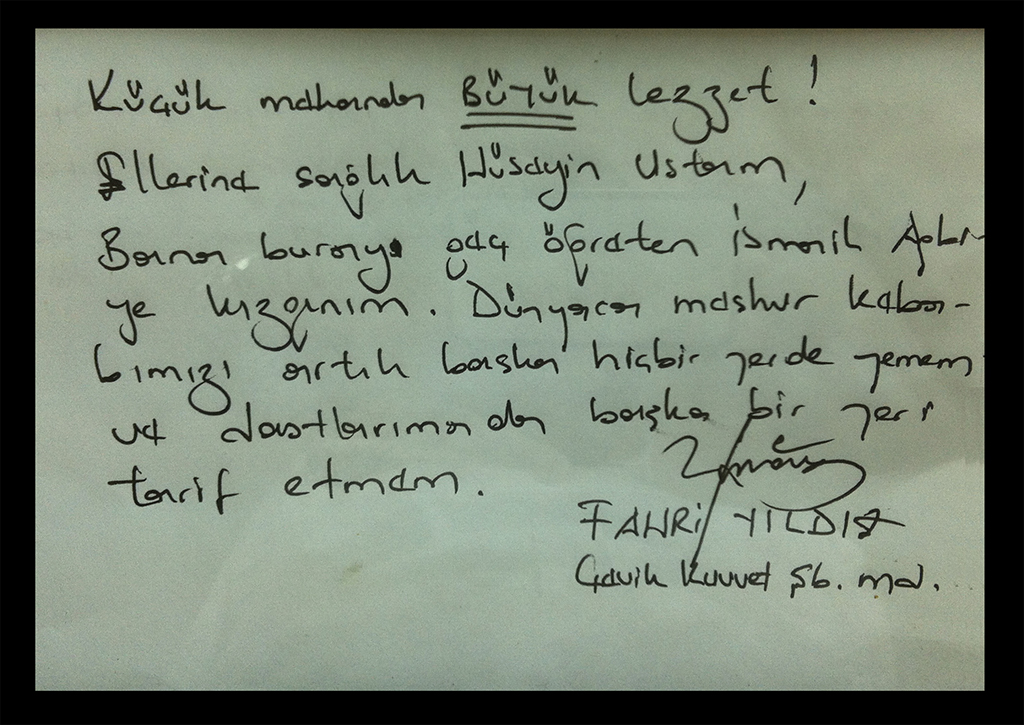 Küçük mekandan BÜYÜK lezzet!
Ellerine sağlık Hüseyin Ustam,
Bana burayı geç öğreten İsmail Ağbi-
ye kızgınım. Dünyaca meshur keba-
bımızı artık başka hiçbir yerde yemem
ve dostlarıma da başka bir yeri
tarif etmem.
FAHRİ YILDIZ
Çevik Kuvvet Şb. md.